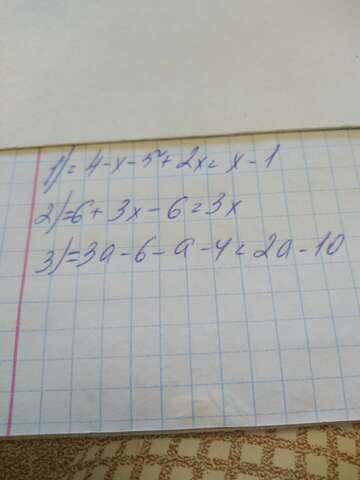 1) = 4-x-5+2x = x-1
2) = 6+3x-6 = 3x
3) = 3a-6-a-4 = 2a-10